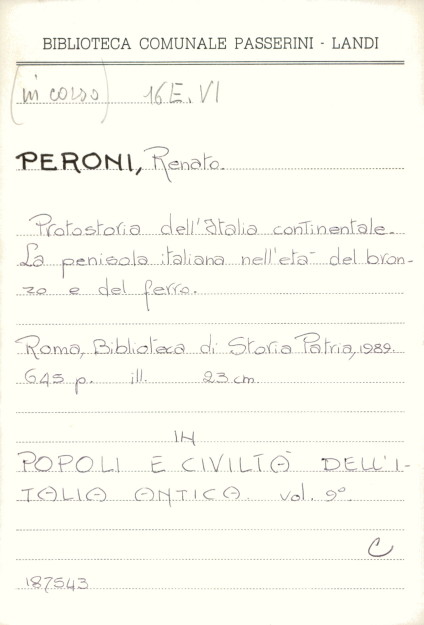 BIBLIOTECA COMUNALE PASSERINI - LANDI
(in corso) 16E.VI
PERONI, Renato.
Protostoria dell'Italia continentale.
La penisola italiana nell'età del bron-
zo e del ferro.
Roma, Biblioteca di Storia Patria, 1989.
645 p. ill. 23 cm.
IN
POPOLI E CIVILTÀ DELL'I-
TALIA ANTICA. vol. 9°.
C
187543